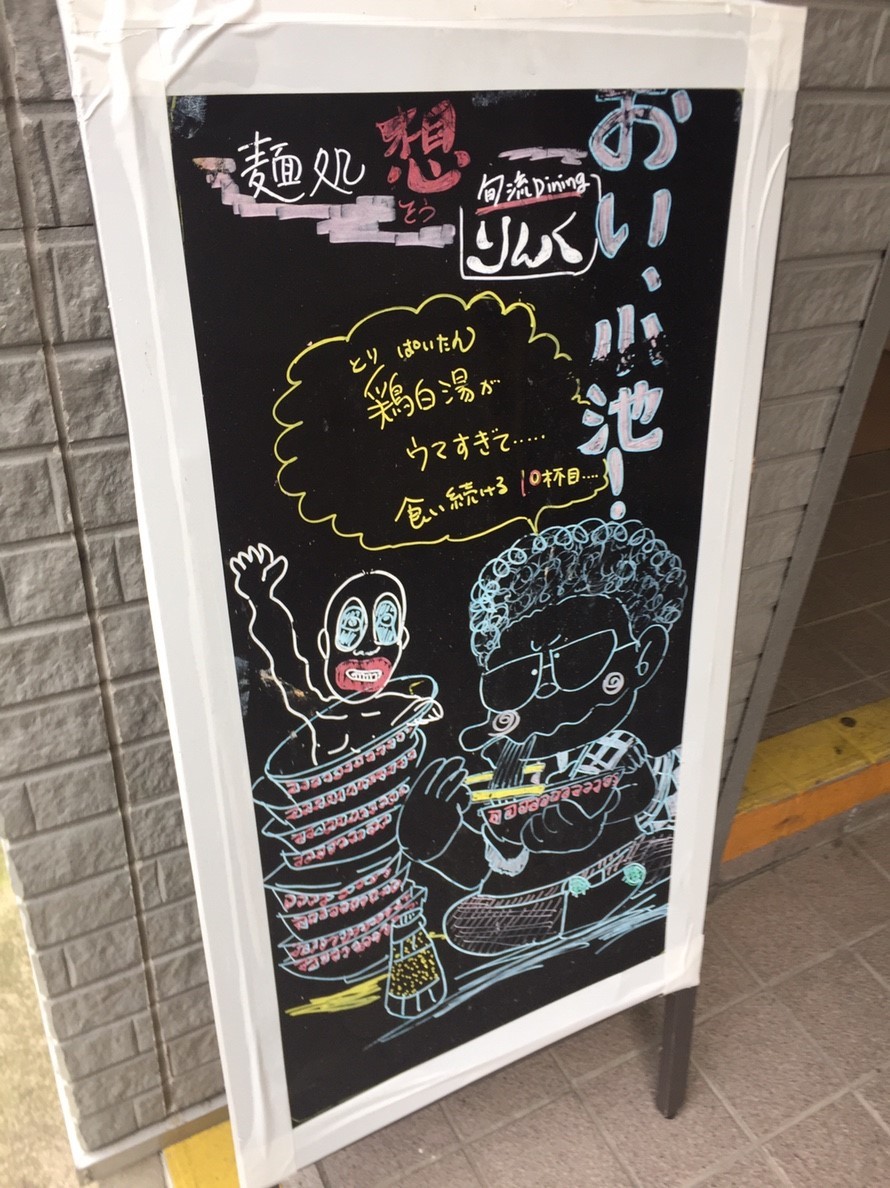 おい、小池!
麺処 想
そう
旬流Dining
りんく
とり ぱいたん
鶏白湯が
ウマすぎて.....
食い続ける 10杯目....